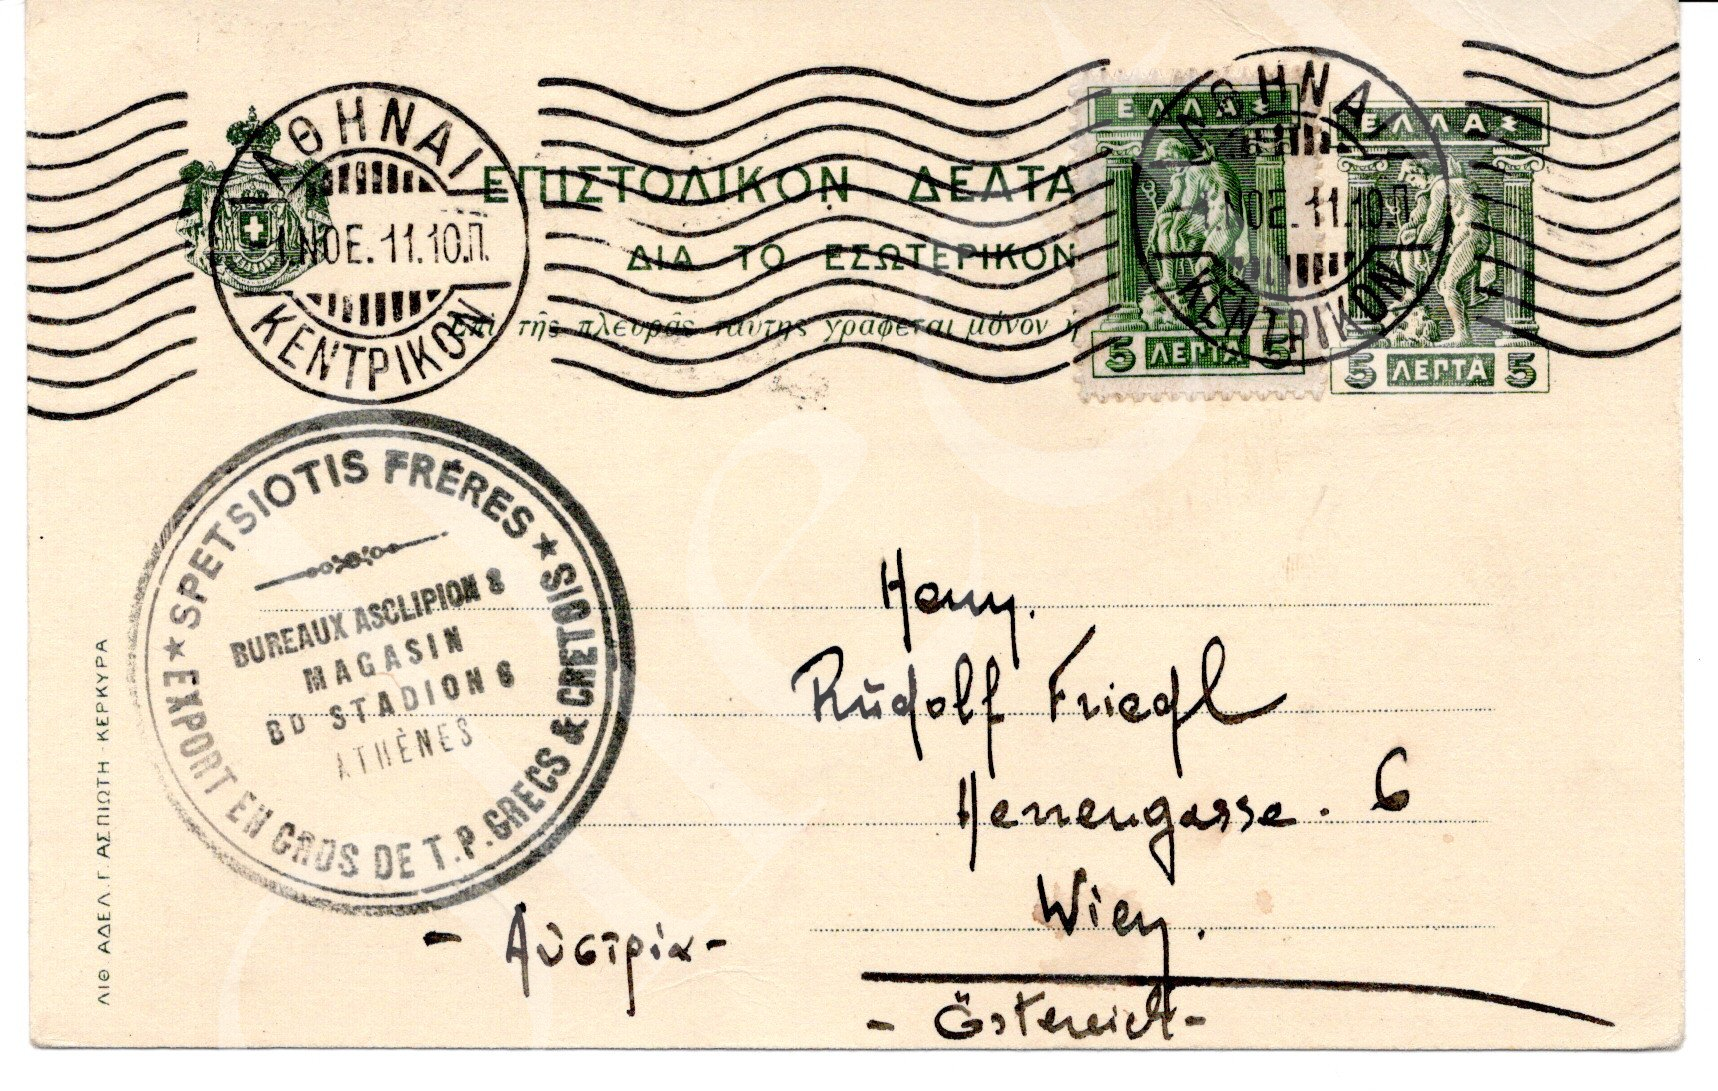 ΕΠΙΣΤΟΛΙΚΟΝ ΔΕΛΤΑ
ΔΙΑ ΤΟ ΕΣΩΤΕΡΙΚΟΝ
Ἐπὶ τῆς πλευρᾶς ταύτης γράφεται μόνον ἡ
ΑΘΗΝΑΙ
1.ΝΟΕ.11.10.Π.
ΚΕΝΤΡΙΚΟΝ
ΕΛΛΑΣ
5 ΛΕΠΤΑ 5
ΑΘΗΝΑΙ
ΝΟΕ.11.10.Π
ΚΕΝΤΡΙΚΟΝ
ΕΛΛΑΣ
5 ΛΕΠΤΑ 5
★ SPETSIOTIS FRÉRES ★
EXPORT EN GROS DE T.P. GRECS & CRETOIS
BUREAUX ASCLIPION 8
MAGASIN
BD STADION 6
ATHÈNES
ΛΙΘ ΑΔΕΛ. Γ. ΑΣΠΙΩΤΗ - ΚΕΡΚΥΡΑ
Rudolf Friedl
Herrengasse. 6
Wien.
- Αὐστρία -
- Österreich -